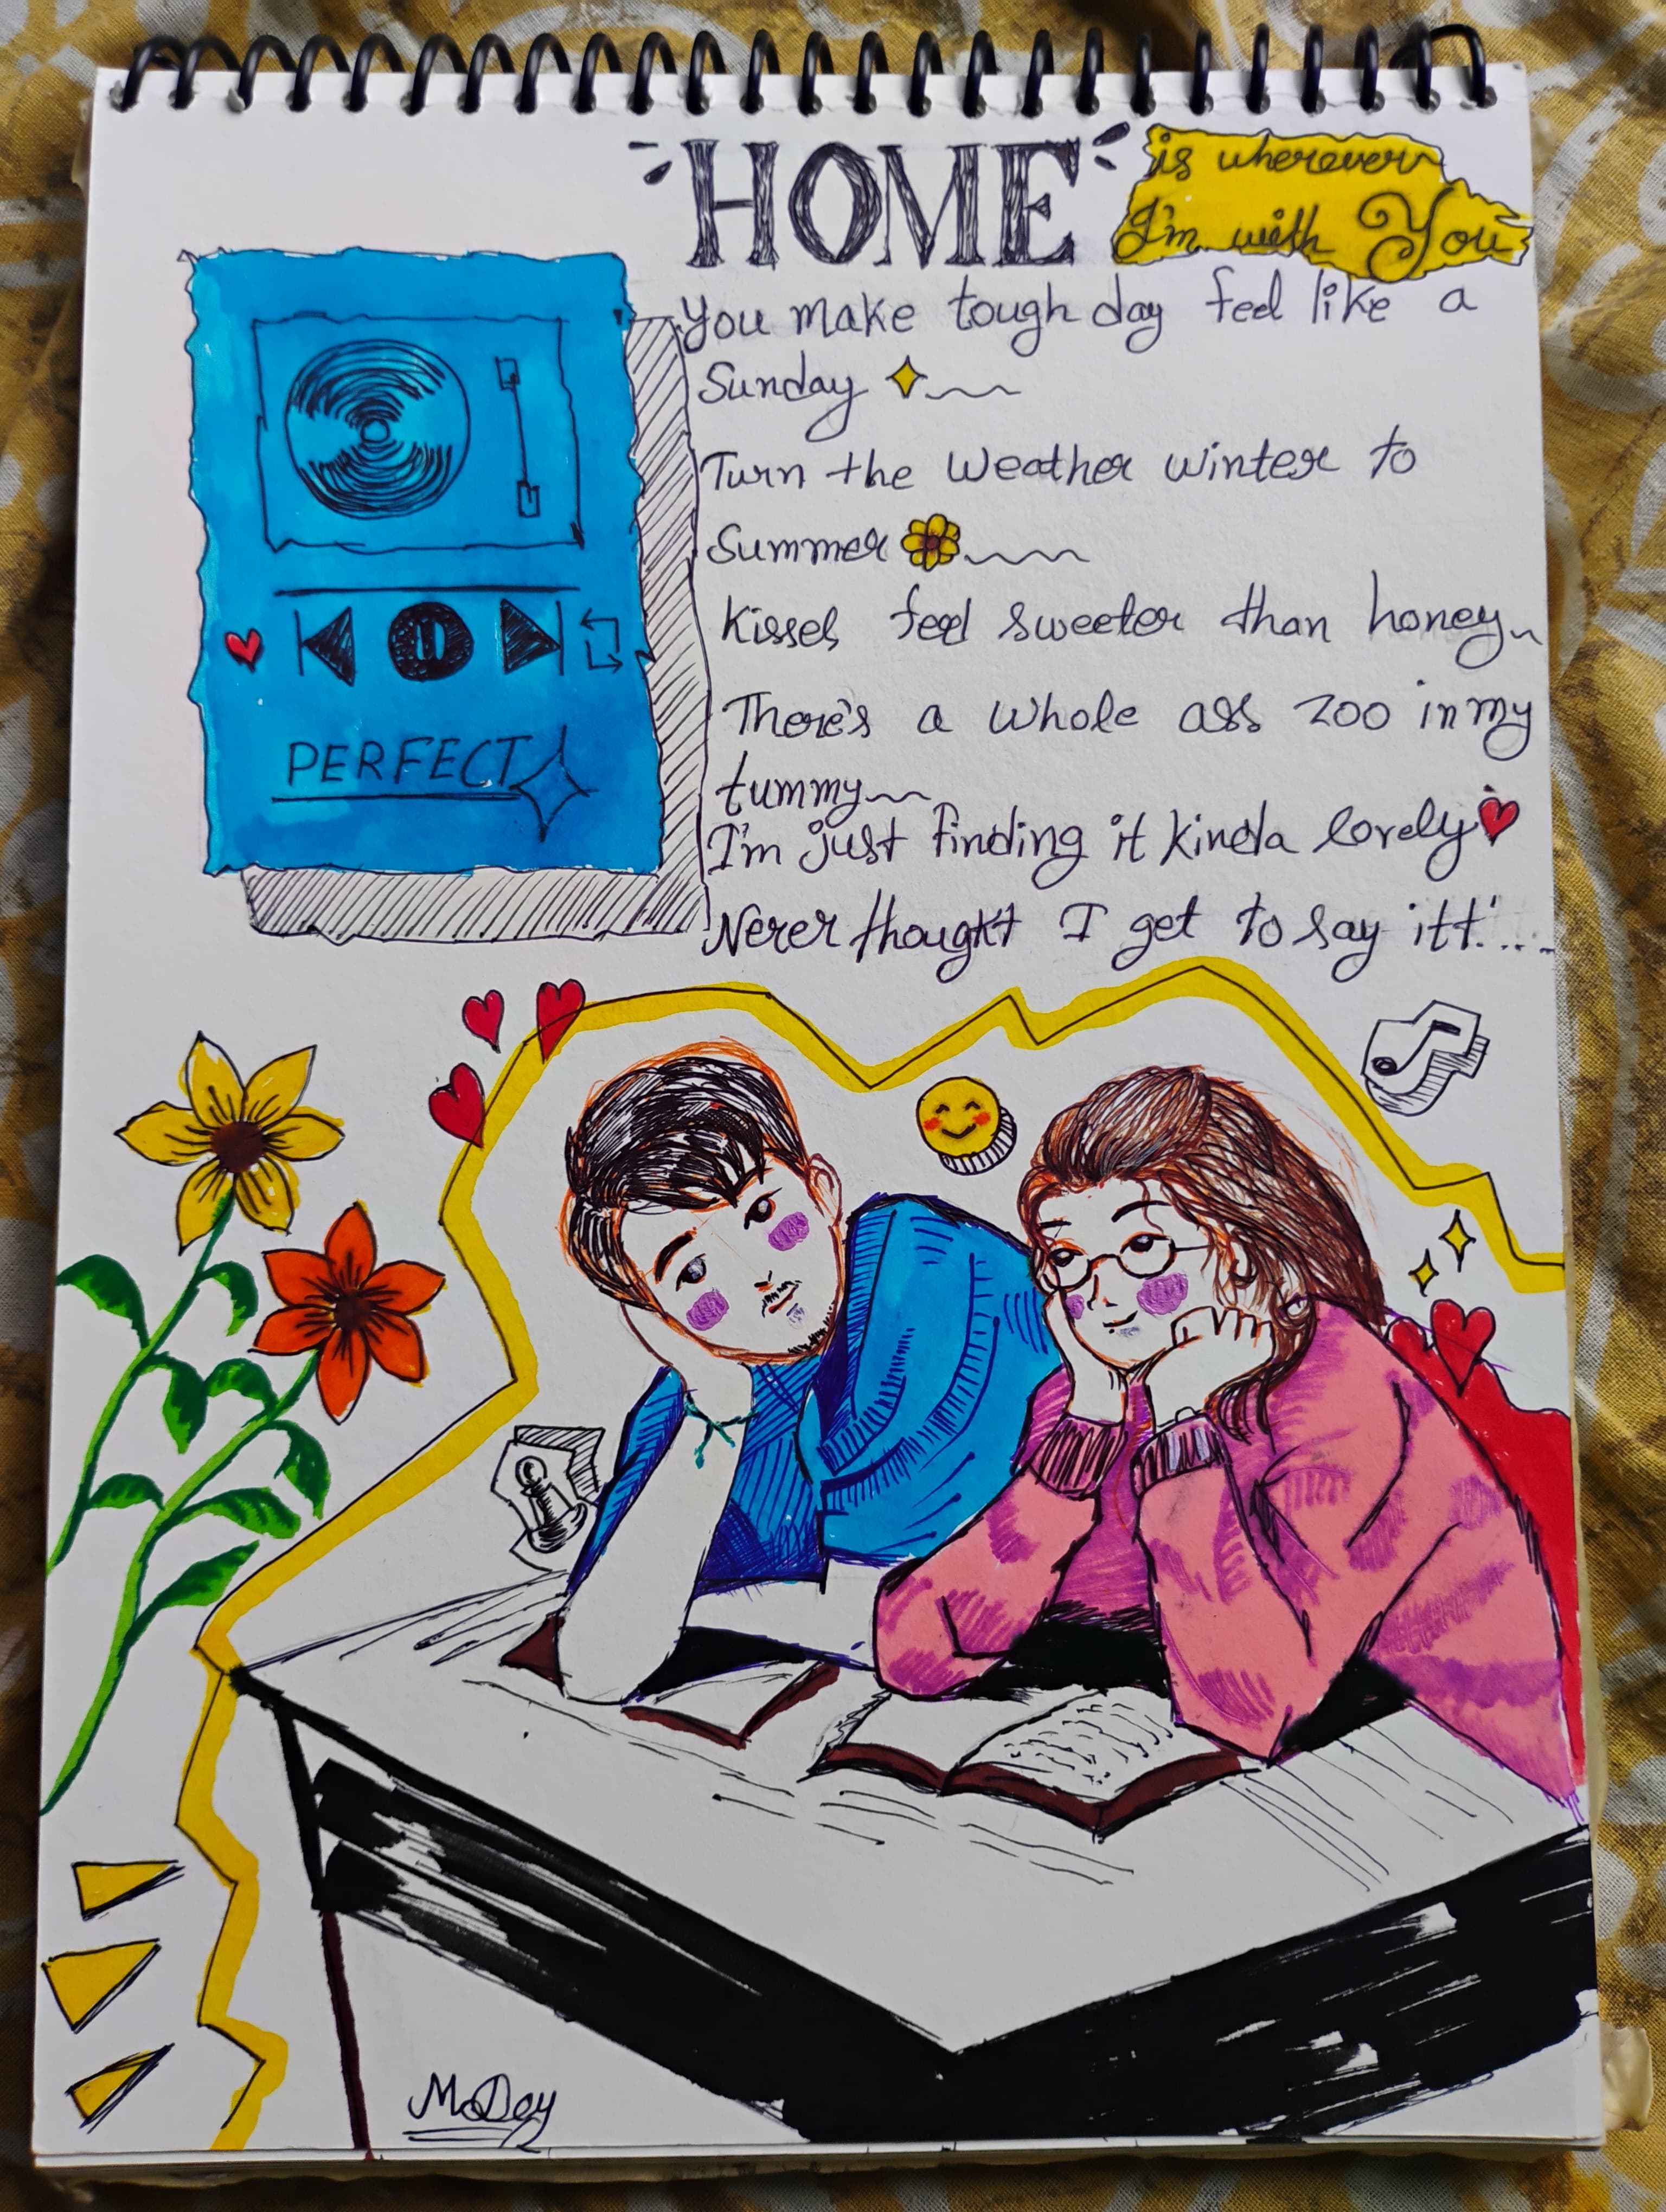 HOME
is wherever
I'm with You
You make tough day feel like a
Sunday
Turn the Weather winter to
Summer
Kisses feel sweeter than honey
There's a whole ass zoo in my
tummy
I'm just finding it kinda lovely
Never thought I get to say itt'....
PERFECT